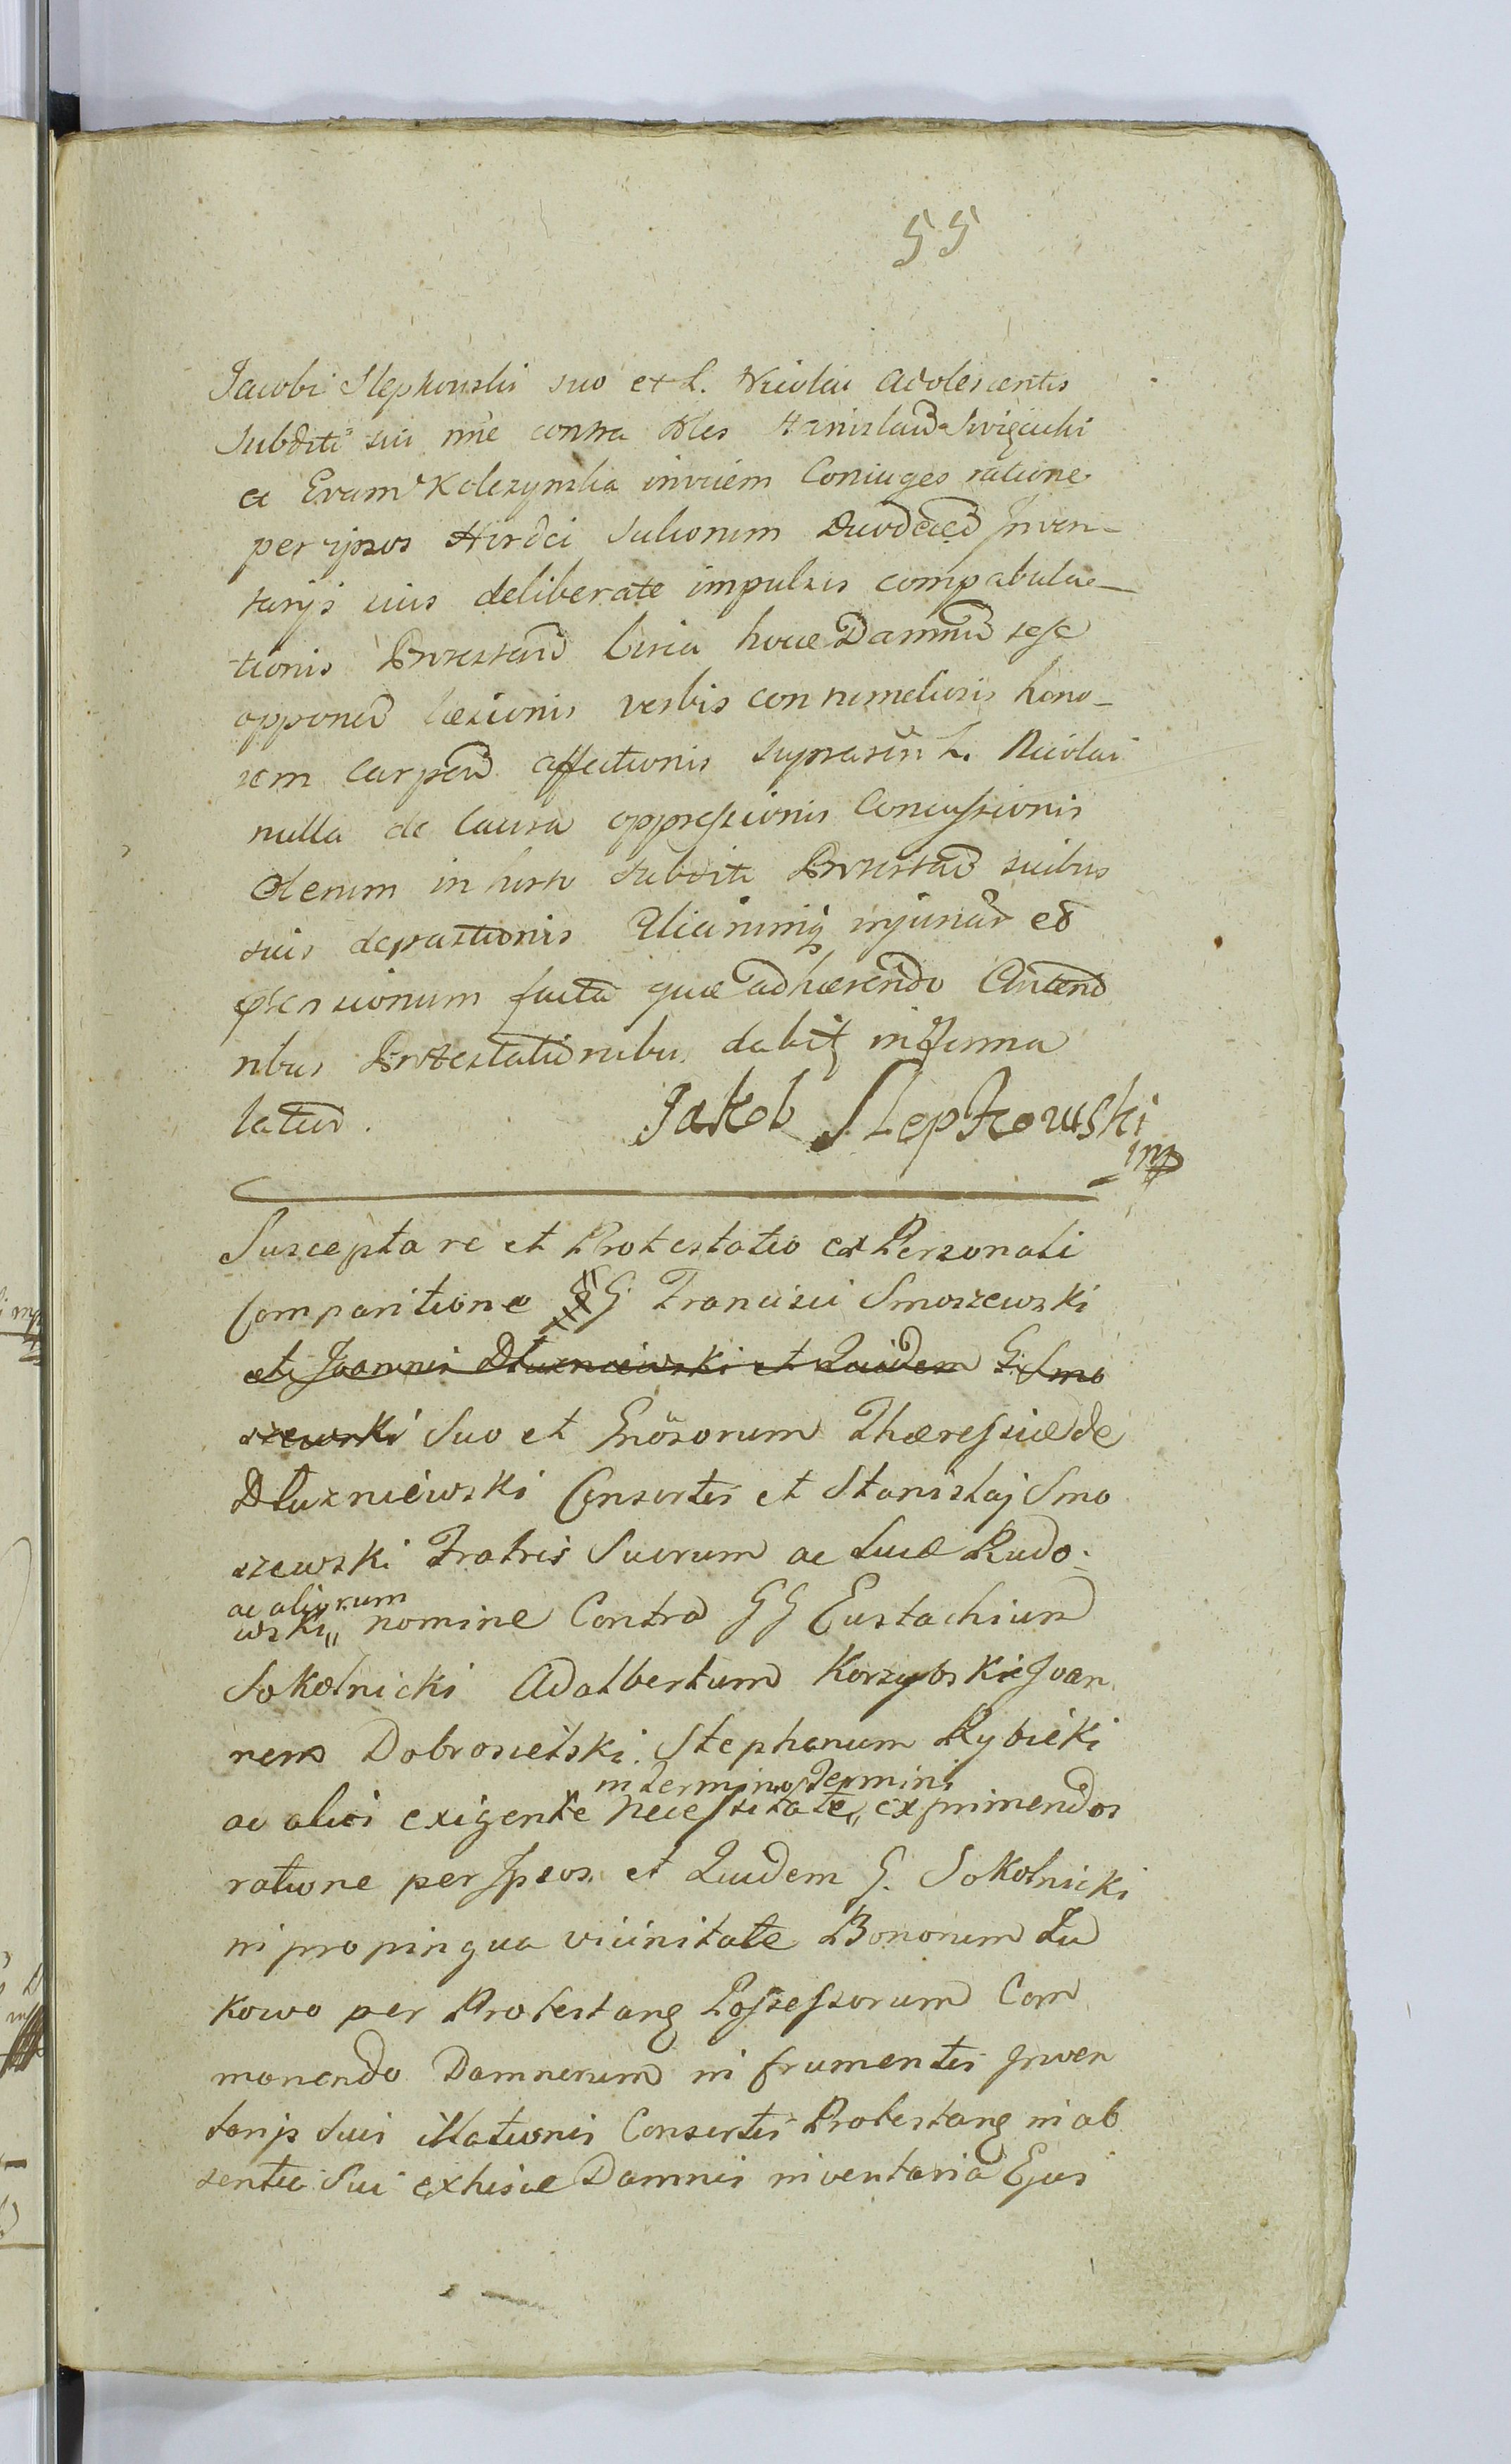 55
Jacobi Slepkowski suo et L. Nicolai Adolescentis
Subditi sui nne contra Nles Stanislaum Swięcicki
et Evam Kolczynska invicem Coniuges ratione
per ipsos Hordei Sulionum Duodecem Inven-
tarijs suis deliberate impulsis compabula-
tionis Protestan circa hocce Damnum sese
opponen læsionis verbis contumeliosis hono-
rem Carpen affectionis suprascri L. Nicolai
nulla de Causa oppressionis Concussionis
Olerum in horto Subditi Protestan suibus
suis depastionis Aliarumq injuriar et
offensionum facta quæ adhærendo Anteno
ribus Protestationibus dabit in forma
latius.
Jakob Slepkowski
mp
Suscepta re et Protestatio ex Personali
Comparitione G Francisci Smoszewski
et Joannis Dłuzniewski et Quidem G. Smo
szewski Suo et Gnosorum Theressiæ de
Dłuzniewski Consortis et Stanislaj Smo
szewski Fratris Suorum ac Lucæ Rudo-
ac aliorum
wski nomine Contra GG Eustachium
Sokolnicki Adalbertum Korzybski Joan
nem Dobrosielski Stephanum Rybicki
in Termino Termini
ac alios exigente necessitate exprimendos
ratione per Ipsos et Quidem G. Sokolnicki
in propinqua vicinitate Bonorum Łu
kowo per Protestang Possessorum Com
monendo Damnorum in frumentis Inven
tarijs Suis illationis Consortis Protestang in ab
sentia Sui ex hisce Damnis inventaria Ejus